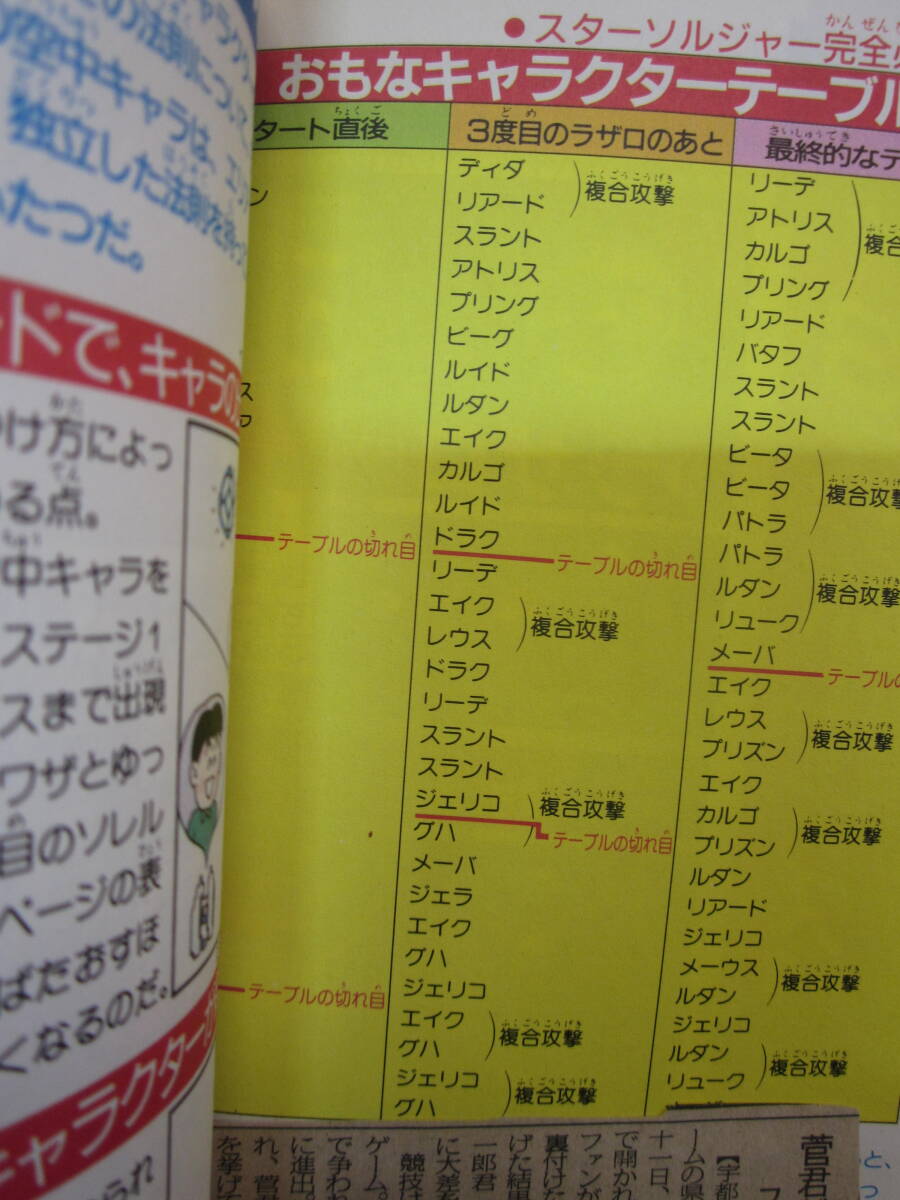 ●スターソルジャー完全
おもなキャラクターテーブル
タート直後
ン
ス
テーブルの切れ目
テーブルの切れ目
3度目のラザロのあと
ディダ
リアード
複合攻撃
スラント
アトリス
プリング
ビーグ
ルイド
ルダン
エイク
カルゴ
ルイド
ドラク
テーブルの切れ目
リーデ
エイク
レウス
複合攻撃
ドラク
リーデ
スラント
スラント
ジェリコ
グハ
複合攻撃
テーブルの切れ目
メーバ
ジェラ
エイク
グハ
ジェリコ
エイク
グハ
複合攻撃
ジェリコ
グハ
複合攻撃
最終的なテ
リーデ
アトリス
カルゴ
プリング
複合
リアード
バタフ
スラント
スラント
ビータ
ビータ
パトラ
複合攻撃
パトラ
ルダン
リューク
複合攻撃
メーバ
テーブルの
エイク
レウス
プリズン
複合攻撃
エイク
カルゴ
プリズン
複合攻撃
ルダン
リアード
ジェリコ
メーウス
ルダン
複合攻撃
ジェリコ
ルダン
リューク
複合攻撃
の法則につい
空中キャラは、エ
独立した法則を
ふたつだ。
ドで、キャラの
つけ方によっ
る点。
中キャラを
ステージ1
スまで出現
ワザとゆっ
目のソレル
ページの表
ばたおすほ
くなるのだ。
キャラクターが
られ
菅君
【宇都
ームの県
十一日、
で開かれ
ファンが
裏付けた
げた結果
一郎君
に大差を
競技は
ゲーム。
で争われ
に進出。
れ、菅
を挙げて